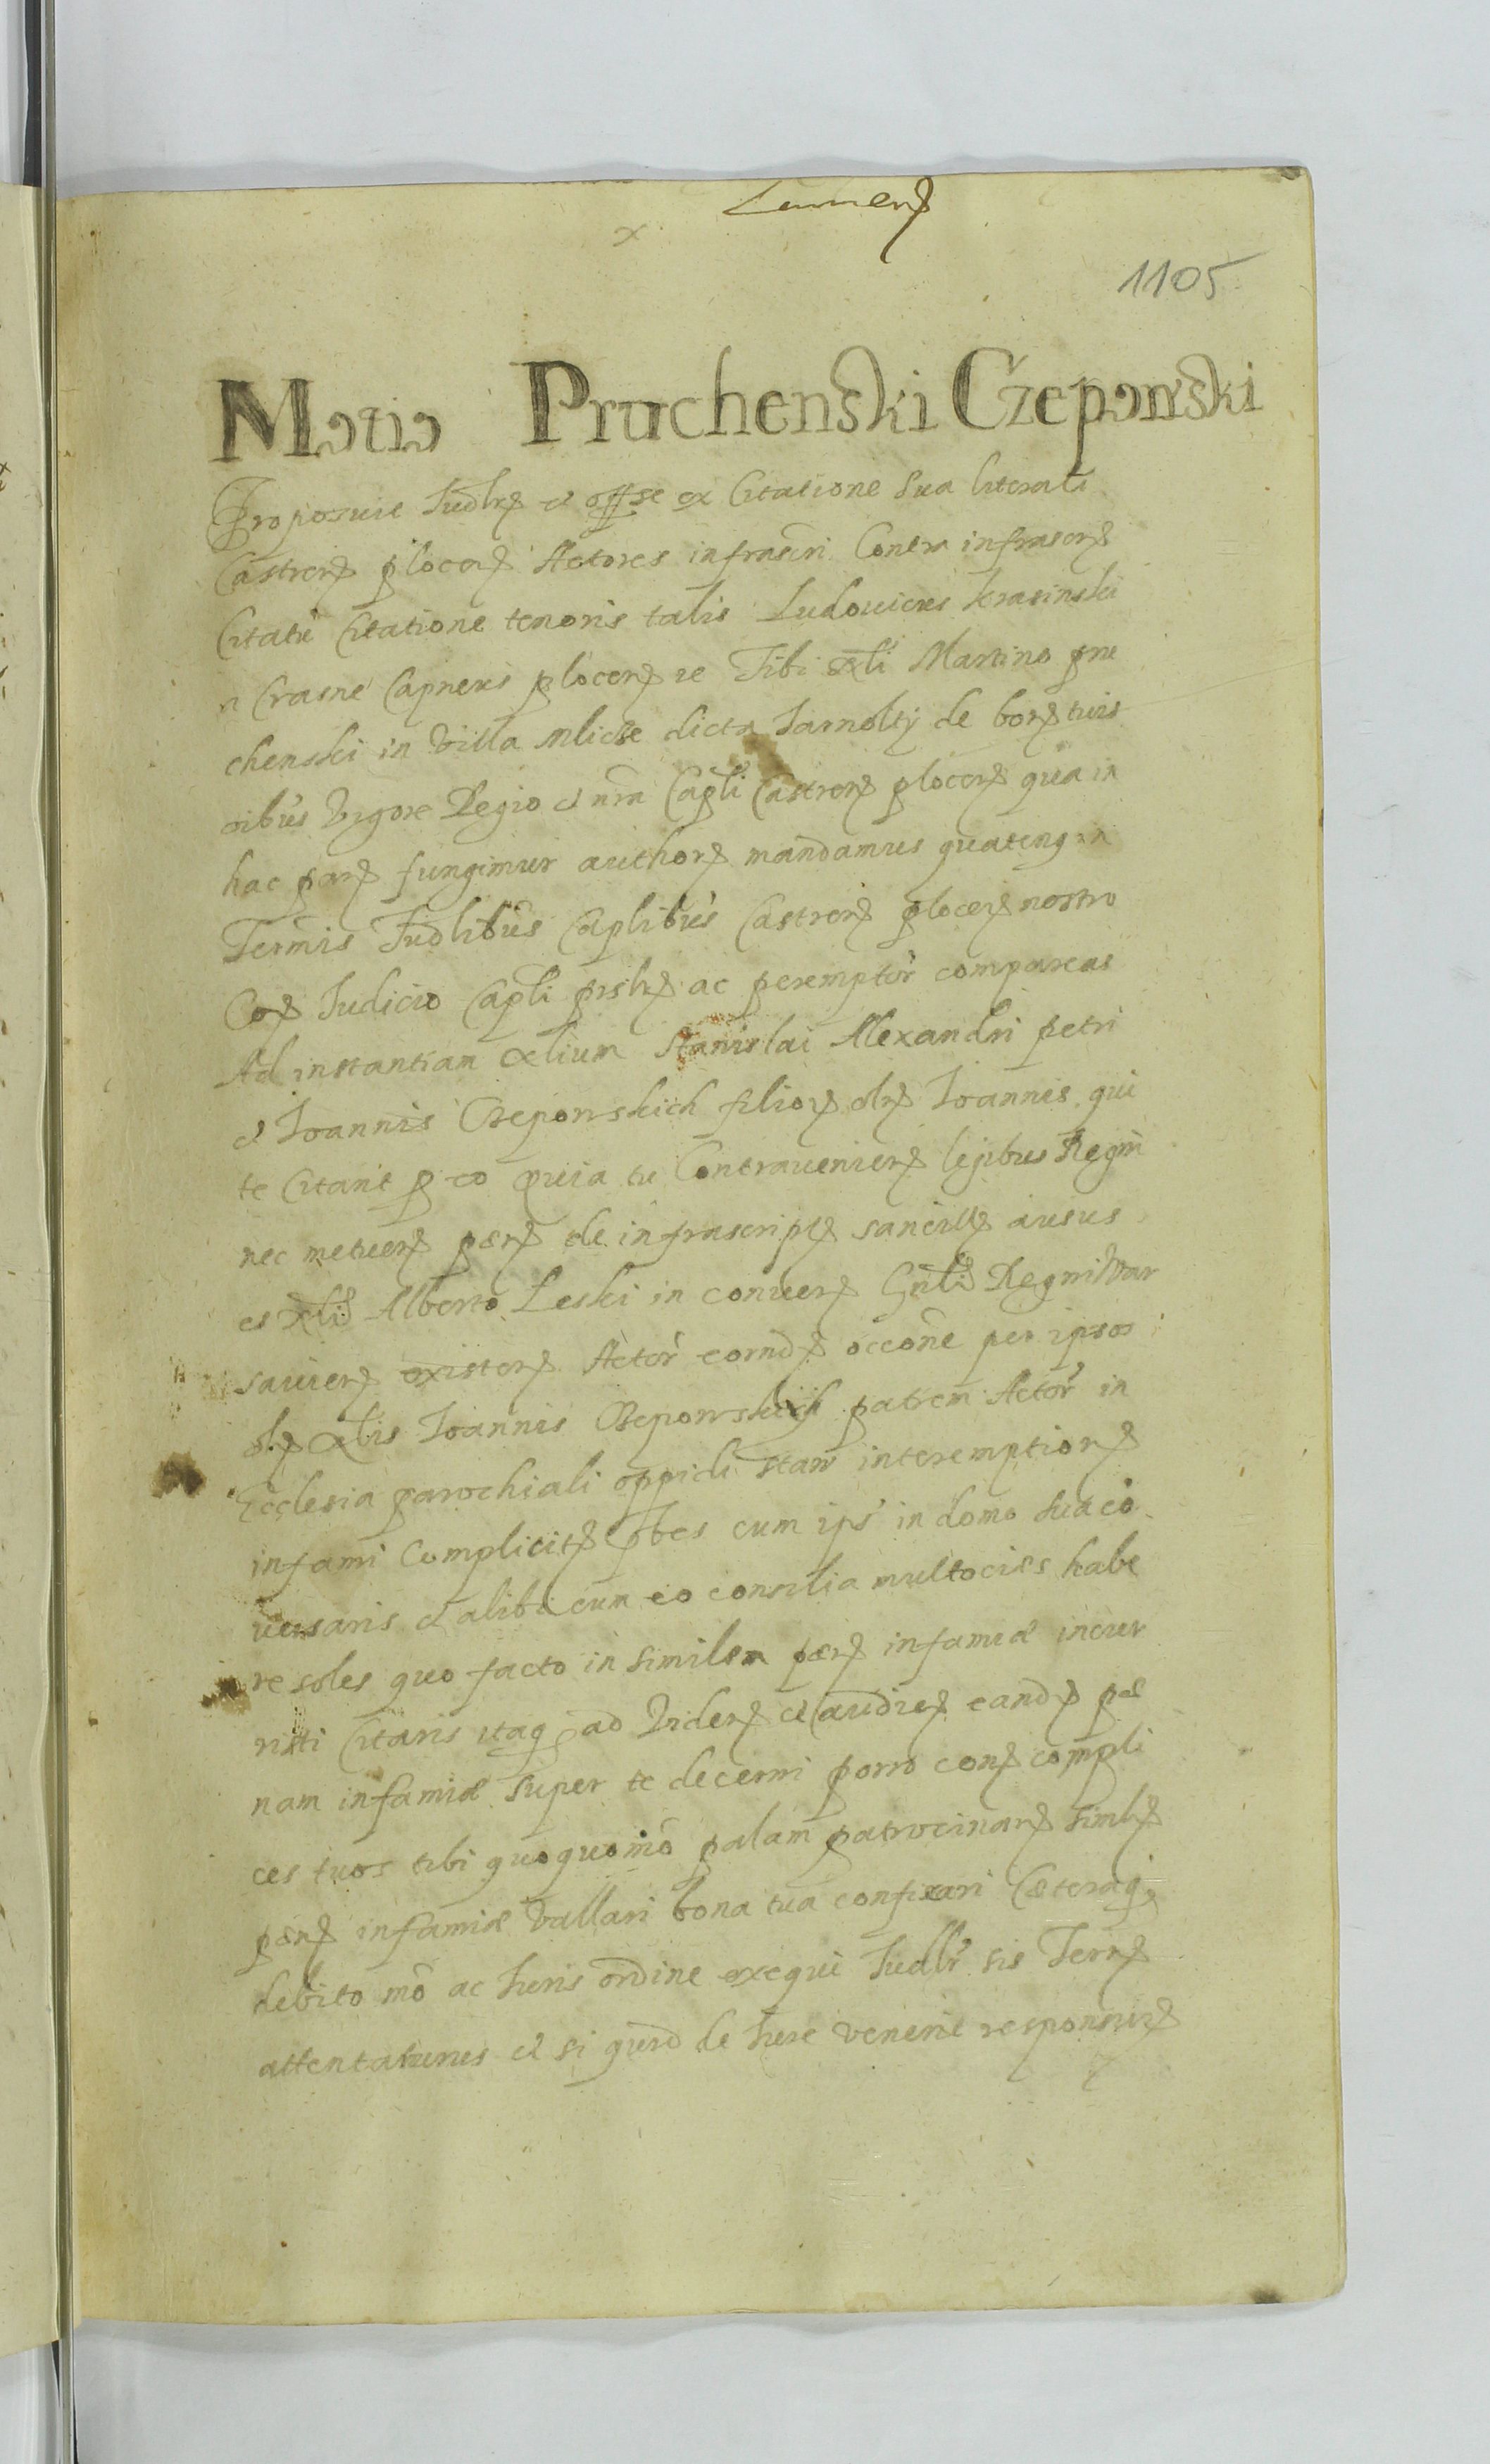 x
1105
Motio Pruchenski Czeponski
Proposuit Iudlr et offse ex Citatione Sua literali
Castren plocen Actores infrascri Contra infrascr
Citatu Citatione tenoris talis Ludovicus Krasinski
n Crasne Capneus plocen re Tibi Martino pru
chenski in Villa Mlicze dicta Jarnolty de bon tuis
oibus Vigore Regio et nra Capli Castren plocen qua in
hac par fungimur author mandamus quateng in
Termis Iudlibus Caplibus Castren plocen nostro
Cor Iudicio Capli prslr ac peremptor compareas
Ad instantiam Stanislai Alexandri petri
et Ioannis Czeponskich filior olr Ioannis qui
te Citant p eo quia tu Contravenien legibus Regni
nec metuen poen de infrascript sancitt ausus
es Alberto Leski in conven Gnli Regni War
savien existen Actor eornd occone per ipsos
Ioannis Czeponskich patrem Actor in
Ecclesia parochiali oppidi staw interemption
infami Complicit pbes cum ips in domo sua co
versaris et alibi cum eo consilia multocies habe
re soles quo facto in similem poen infamiæ incur
risti Citaris itaq ad Viden et audien eand pæ
nam infamiæ super te decerni porro con compli
ces tuos tibi quoquomo palam patrocinan simlr
poen infamiæ Vallari bona tua confiscari Cæteraq
debito mo ac Iuris ordine exequi Iudlr sis Term
attentaturus et si quid de Iure venerit responsur